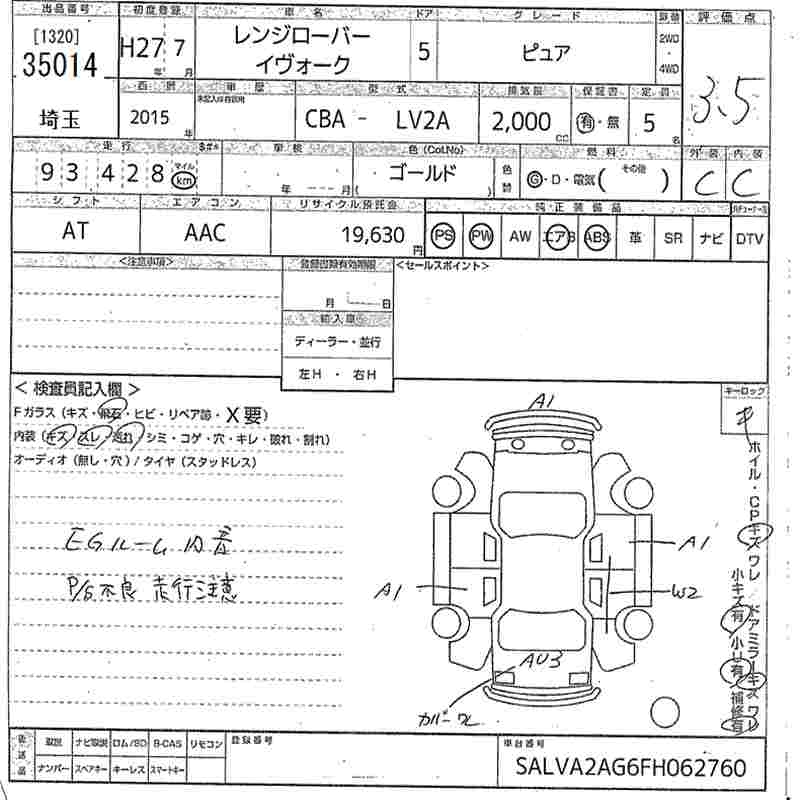 出品番号 初度登録 車名 ドア グレード 駆動 評価点
[1320]
35014
H27 7
年 月
レンジローバー
イヴォーク
5
ピュア
2WD
・
4WD
3.5
西暦 車歴 型式 排気量 保証書 定員
埼玉
2015 年
CBA - LV2A
2,000 cc
有・無
5 名
走行 $#* 車検 色(Col.No) 燃料 外装 内装
93428
マイル
km
年 月
ゴールド
色替
G・D・電気( その他 )
C C
シフト エアコン リサイクル預託金 純正装備品
AT AAC 19,630 円
PS PW AW エアB ABS 革 SR ナビ DTV
<注意事項> 登録書類有効期限 <セールスポイント>
月 日
輸入車
ディーラー・並行
左H ・ 右H
< 検査員記入欄 >
Fガラス (キズ・飛石・ヒビ・リペア跡・X要)
内装 (キズ・スレ・汚れ・シミ・コゲ・穴・キレ・破れ・割れ)
オーディオ (無し・穴) / タイヤ (スタッドレス)
EGルーム内音
P/S不良 走行注意
A1
A1
A1
W2
AU3
カバーワレ
キーロック
ホイル・CPキズワレ ドアミラーキズワレ
小キズ有 小U有 補修有
後送品
取説 ナビ取説 ロム/SD B-CAS リモコン
ナンバー スペアキー キーレス スマートキー
登録番号
車台番号
SALVA2AG6FH062760